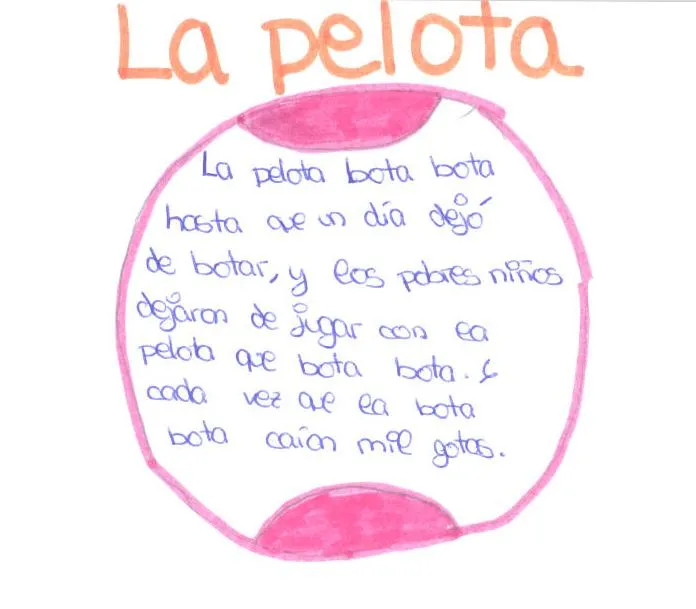 La pelota
La pelota bota bota
hasta que un día dejó
de botar, y los pobres niños
dejaron de jugar con la
pelota que bota bota. Y
cada vez que la bota
bota caían mil gotas.